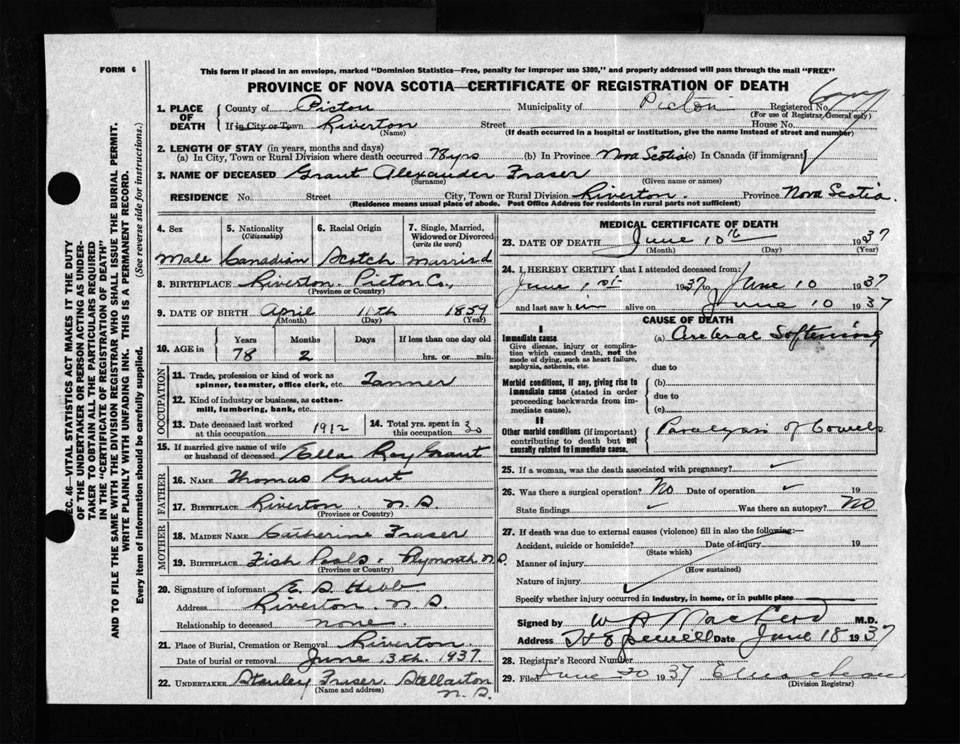 FORM 6
This form if placed in an envelope, marked "Dominion Statistics—Free, penalty for improper use $300," and properly addressed will pass through the mail "FREE"
PROVINCE OF NOVA SCOTIA—CERTIFICATE OF REGISTRATION OF DEATH
SEC. 46—VITAL STATISTICS ACT MAKES IT THE DUTY
OF THE UNDERTAKER OR PERSON ACTING AS UNDER-
TAKER TO OBTAIN ALL THE PARTICULARS REQUIRED
IN THE "CERTIFICATE OF REGISTRATION OF DEATH"
AND TO FILE THE SAME WITH THE DIVISION REGISTRAR WHO SHALL ISSUE THE BURIAL PERMIT.
WRITE PLAINLY WITH UNFADING INK. THIS IS A PERMANENT RECORD.
Every item of information should be carefully supplied. (See reverse side for instructions.)
1. PLACE OF DEATH
County of Pictou Municipality of Pictou Registered No.
(For use of Registrar General only)
If in City or Town Riverton Street House No.
(Name) (If death occurred in a hospital or institution, give the name instead of street and number)
2. LENGTH OF STAY (in years, months and days)
(a) In City, Town or Rural Division where death occurred 78 yrs (b) In Province Nova Scotia (c) In Canada (if immigrant)
3. NAME OF DECEASED Grant Alexander Fraser
(Surname) (Given name or names)
RESIDENCE No. Street City, Town or Rural Division Riverton. Province Nova Scotia.
(Residence means usual place of abode. Post Office Address for residents in rural parts not sufficient)
4. Sex 5. Nationality (Citizenship) 6. Racial Origin 7. Single, Married, Widowed or Divorced (write the word)
Male Canadian Scotch Married
8. BIRTHPLACE Riverton. Pictou Co.,
(Province or Country)
9. DATE OF BIRTH April 11th 1859
(Month) (Day) (Year)
10. AGE in Years Months Days If less than one day old
78 2 hrs. or min.
OCCUPATION
11. Trade, profession or kind of work as spinner, teamster, office clerk, etc. Tanner
12. Kind of industry or business, as cotton-mill, lumbering, bank, etc.
13. Date deceased last worked at this occupation 1912 14. Total yrs. spent in this occupation 30
15. If married give name of wife or husband of deceased Ella Roy Grant
FATHER
16. NAME Thomas Grant
17. BIRTHPLACE Riverton. N.S.
(Province or Country)
MOTHER
18. MAIDEN NAME Catherine Fraser
19. BIRTHPLACE Fish Pools. Plymouth N.S.
(Province or Country)
20. Signature of informant
Address Riverton. N.S.
Relationship to deceased none.
21. Place of Burial, Cremation or Removal Riverton.
Date of burial or removal June 13th. 1937.
22. UNDERTAKER Stanley Fraser. Stellarton
(Name and address) N.S.
MEDICAL CERTIFICATE OF DEATH
23. DATE OF DEATH June 10th 1937
(Month) (Day) (Year)
24. I HEREBY CERTIFY that I attended deceased from:
June 1st 1937 to June 10 1937
and last saw him alive on June 10 1937
CAUSE OF DEATH
I
Immediate cause
Give disease, injury or complication which caused death, not the mode of dying, such as heart failure, asphyxia, asthenia, etc.
(a) Cerebral Softening
due to
Morbid conditions, if any, giving rise to immediate cause (stated in order proceeding backwards from immediate cause).
(b)
due to
(c)
II
Other morbid conditions (if important) contributing to death but not causally related to immediate cause.
Paralysis of bowels
25. If a woman, was the death associated with pregnancy?
26. Was there a surgical operation? No Date of operation 19
State findings Was there an autopsy? No
27. If death was due to external causes (violence) fill in also the following:—
Accident, suicide or homicide? Date of injury 19
(State which)
Manner of injury
(How sustained)
Nature of injury
Specify whether injury occurred in industry, in home, or in public place
Signed by M.D.
Address Date June 18 1937
28. Registrar's Record Number
29. Filed June 1937
(Division Registrar)